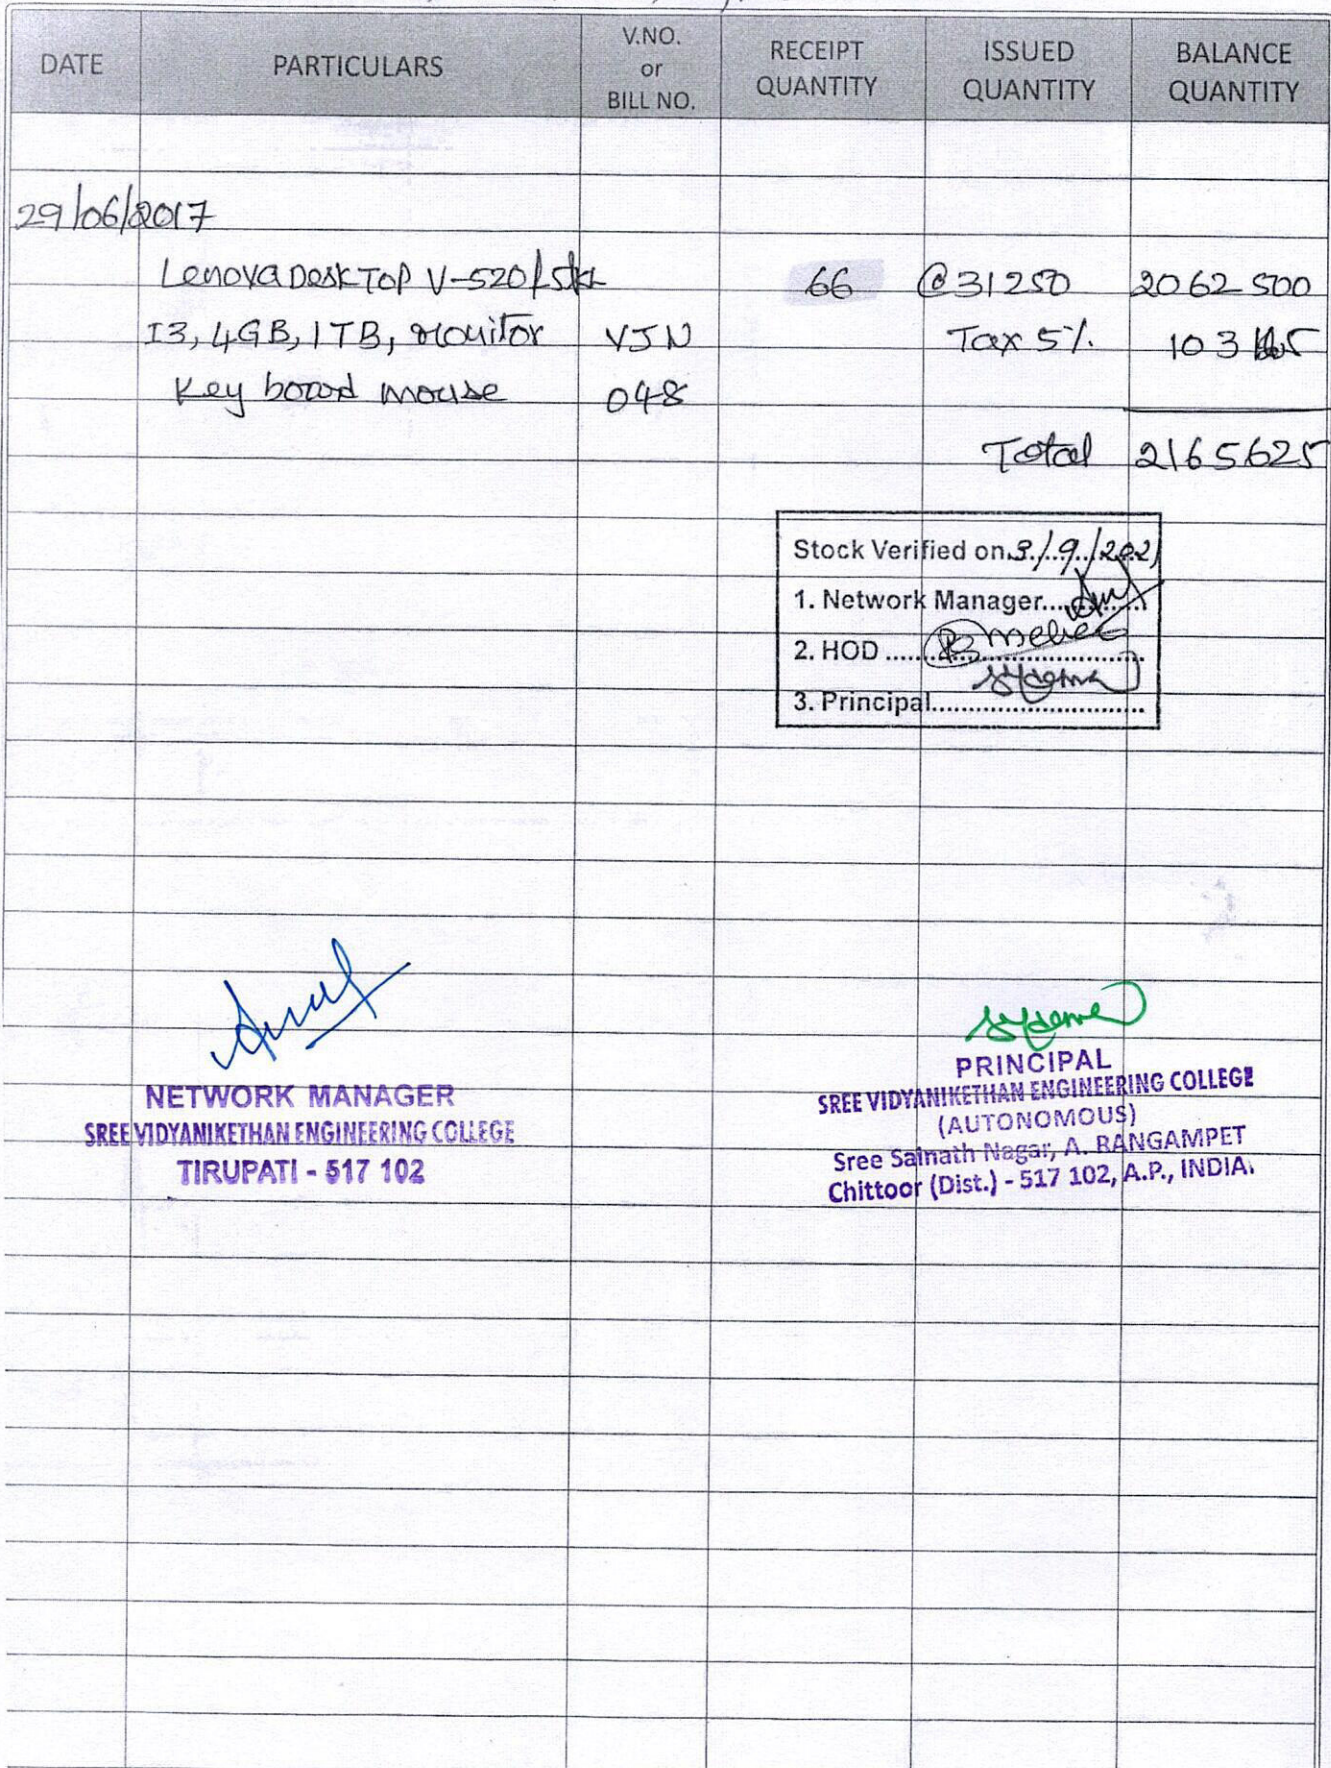 DATE PARTICULARS V.NO. or BILL NO. RECEIPT QUANTITY ISSUED QUANTITY BALANCE QUANTITY
29/06/2017
Lenova DeskTop V-520 66 @31250 2062500
I3, 4GB, 1TB, Monitor VJN Tax 5%. 103
Key board mouse 048
Total 2165625
Stock Verified on 3/9/2021
1. Network Manager
2. HOD
3. Principal
NETWORK MANAGER
SREE VIDYANIKETHAN ENGINEERING COLLEGE
TIRUPATI - 517 102
PRINCIPAL
SREE VIDYANIKETHAN ENGINEERING COLLEGE
(AUTONOMOUS)
Sree Sainath Nagar, A. RANGAMPET
Chittoor (Dist.) - 517 102, A.P., INDIA.